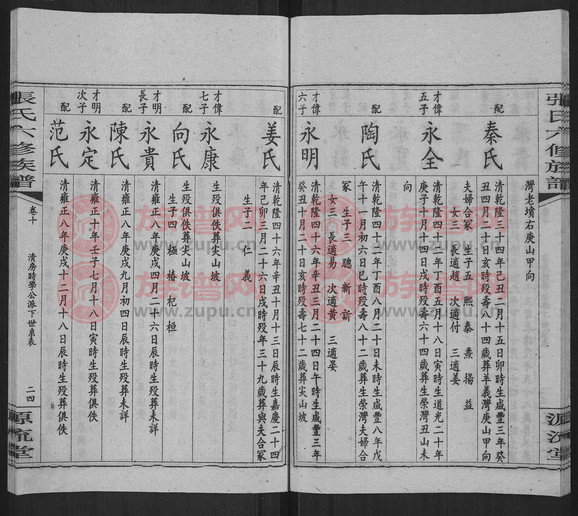 張氏六修族譜
源流堂
灣老墳右庚山甲向
配
秦氏
清乾隆三十四年己丑二月十五日卯時生咸豐三年癸
丑四月二十日亥時歿壽八十四歲葬羊義灣庚山甲向
夫婦合冢 生子五 熙 泰 燾 揚 益
女三 長適趙 次適付 三適姜
才偉五子
永全
清乾隆四十二年丁酉五月十八日寅時生道光二十年
庚子十月十四日戌時歿壽六十四歲葬生榮灣丑山未
向
配
陶氏
清乾隆四十二年丁酉八月二十日未時生咸豐八年戊
午十一月初六日巳時歿壽八十二歲葬生榮灣夫婦合
冢 生子三 聰 新 訢
女三 長適易 次適黃 三適晏
才偉六子
永明
清乾隆四十六年辛丑三月二十四日午時生咸豐三年
癸丑十月二十日亥時歿壽七十二歲葬尖山坡
配
姜氏
清乾隆四十六年辛丑十二月二十六日辰時生嘉慶二十四
年己卯三月二十六日戌時歿年三十九歲葬與夫合冢
生子二 仁 義
才偉七子
永康
生歿俱佚葬尖山坡
配
向氏
生歿俱佚葬尖山坡
生子四 極 椿 杞 桓
才明長子
永貴
清雍正八年庚戌四月二十六日寅時生歿葬未詳
配
陳氏
清雍正八年庚戌九月初四日辰時生歿葬未詳
才明次子
永定
清雍正十年壬子七月十八日寅時生歿葬俱佚
配
范氏
清雍正八年庚戌十二月十八日辰時生歿葬俱佚
張氏六修族譜
卷十
清房時學公派下世系表
二四
源流堂
族譜网
www.zupu.cn
族譜网
www.zupu.cn